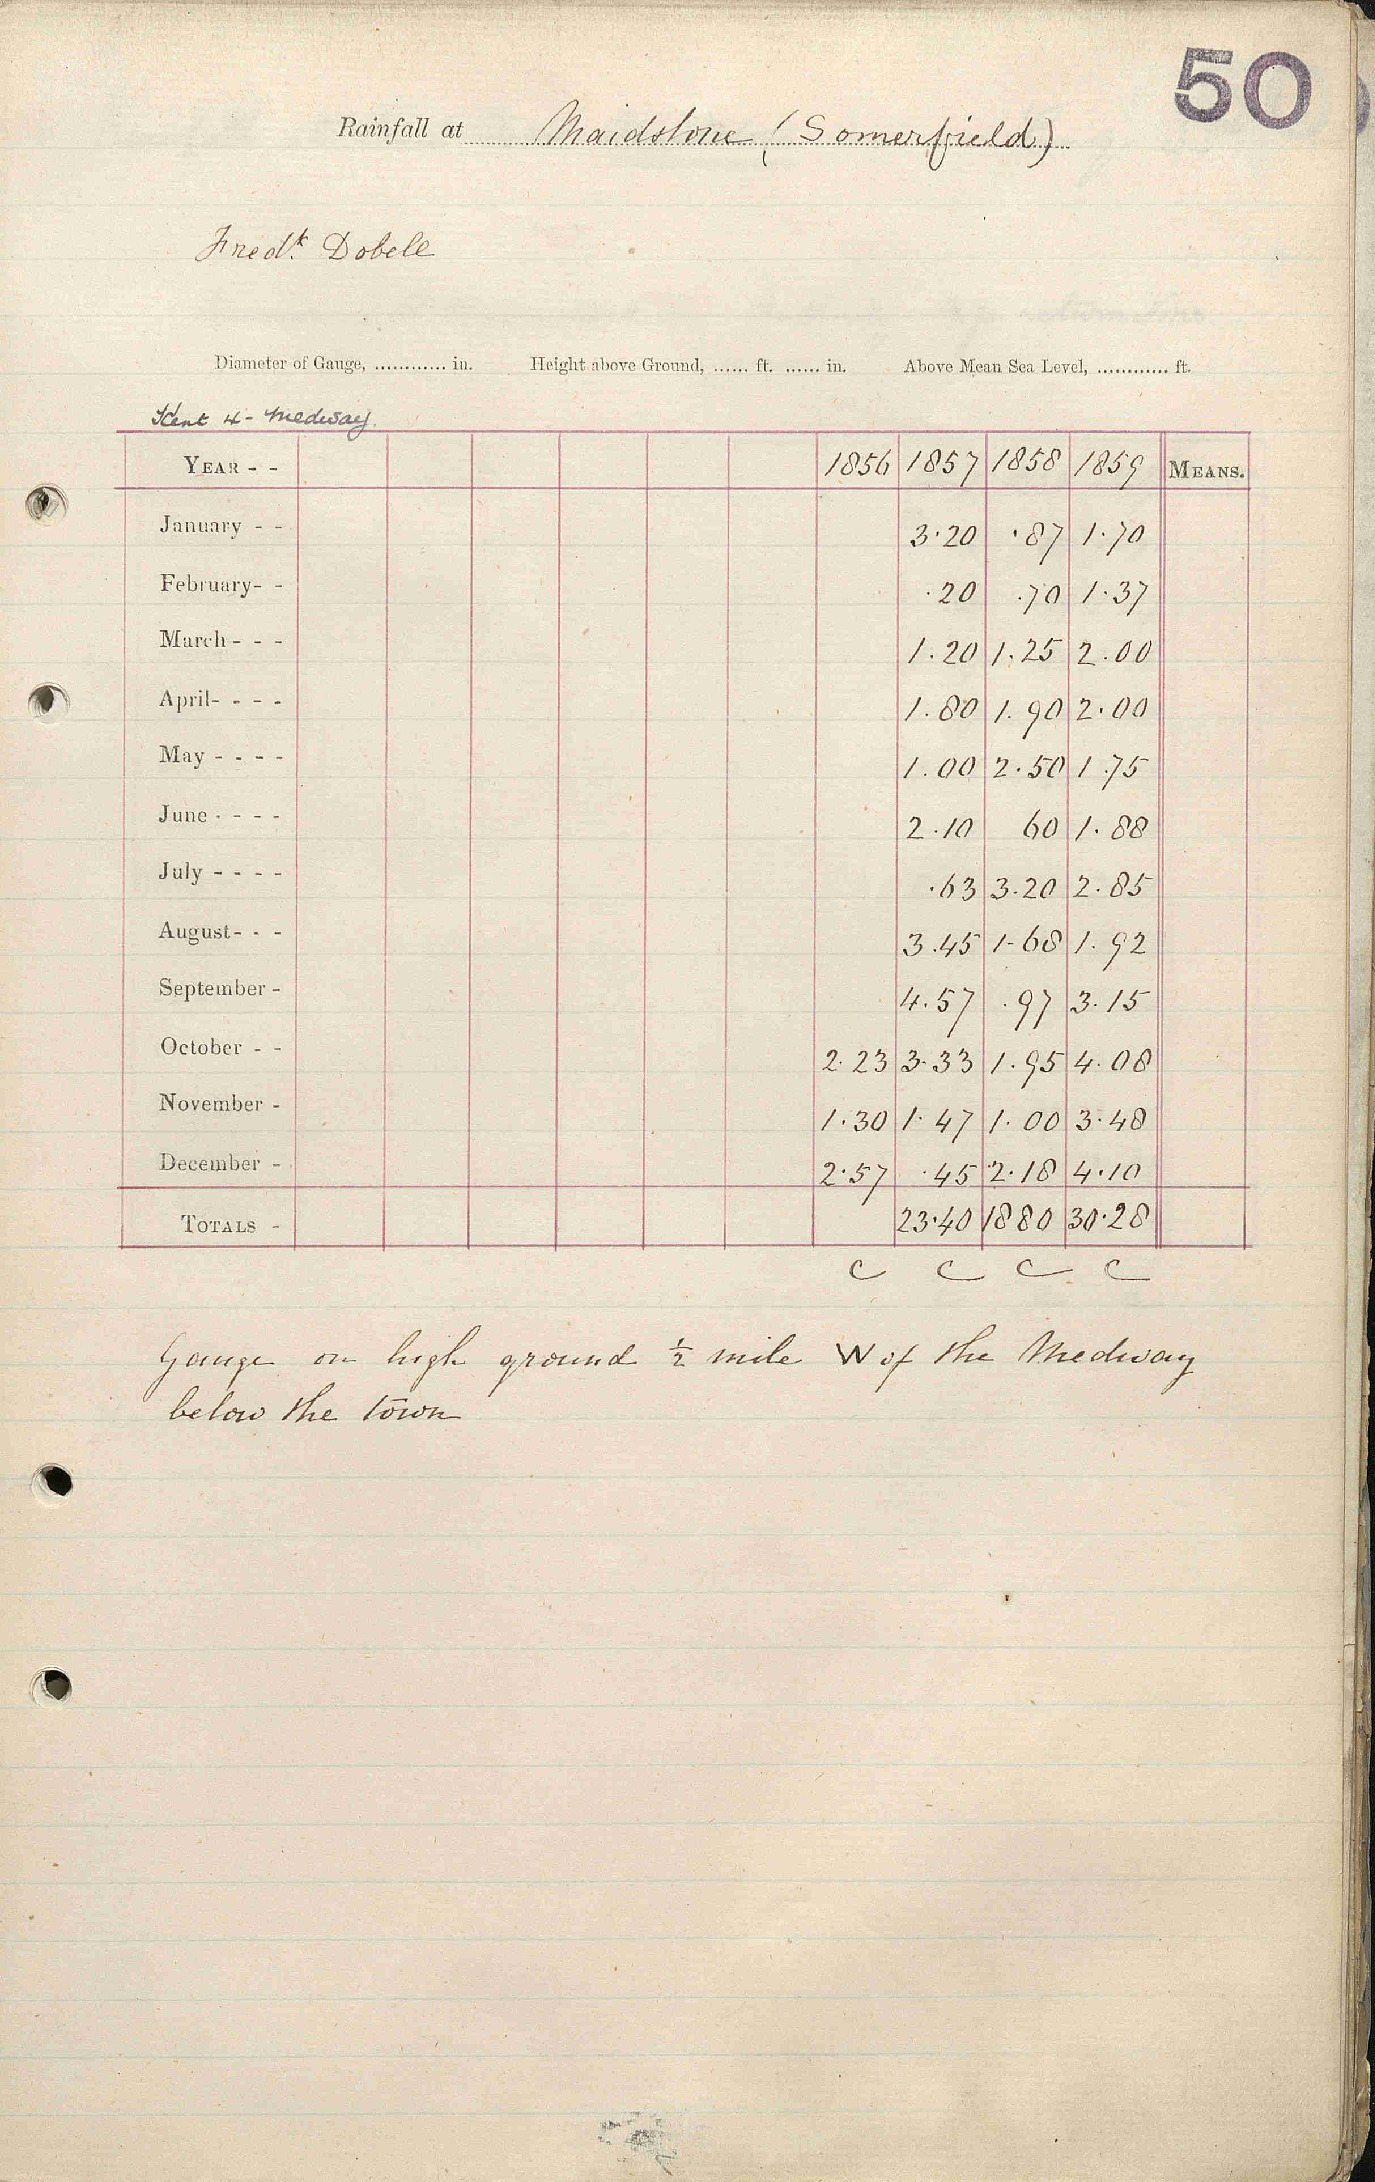 50
Rainfall at Maidstone (Somerfield)
Fredk. Dobell
Diameter of Gauge, ............ in. Height above Ground, ...... ft. ...... in. Above Mean Sea Level, ............ ft.
Kent 4 - Medway
YEAR - - 1856 1857 1858 1859 MEANS.
January - - 3.20 .87 1.70
February- - .20 .70 1.37
March - - - 1.20 1.25 2.00
April- - - - 1.80 1.90 2.00
May - - - - 1.00 2.50 1.75
June - - - - 2.10 60 1.88
July - - - - .63 3.20 2.85
August- - - 3.45 1.68 1.92
September - 4.57 .97 3.15
October - - 2.23 3.33 1.95 4.08
November - 1.30 1.47 1.00 3.48
December - 2.57 .45 2.18 4.10
TOTALS - 23.40 1880 30.28
C C C C
Gauge on high ground ½ mile W of the Medway
below the town